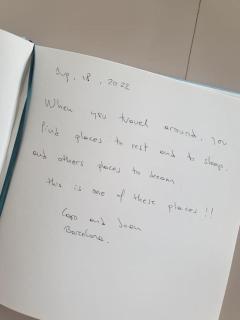 Aug, 18, 2022
When you travel around, you
find places to rest and to sleep,
and others places to dream
this is one of these places !!
and Joan
Barcelona.